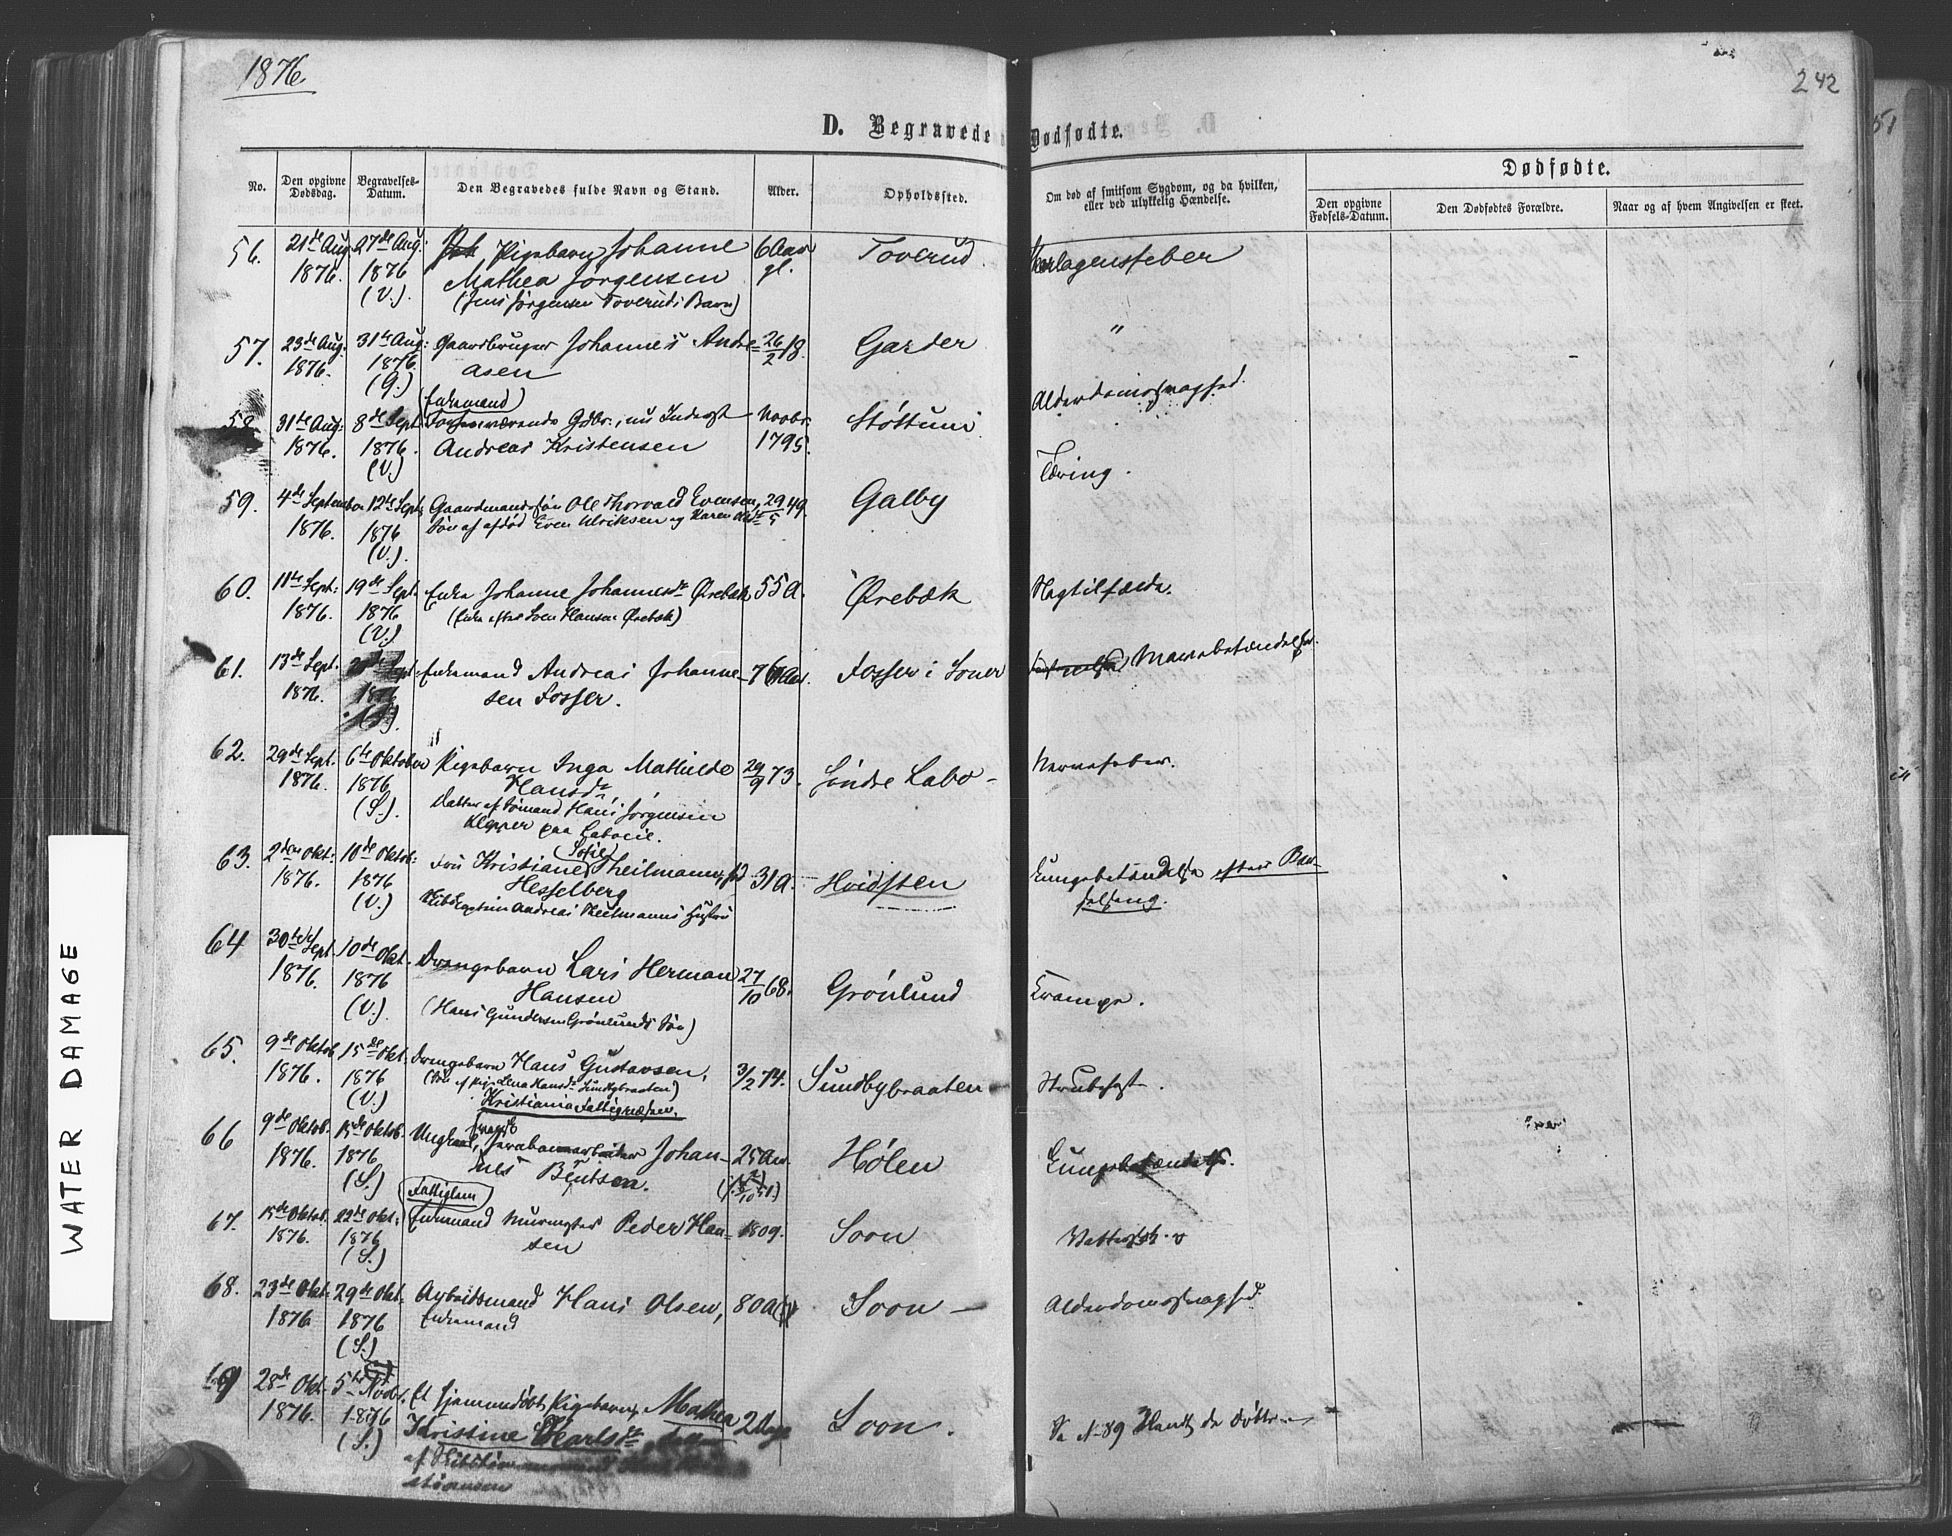 1876.
242
D. Begravede
Dødfødte.
Dødfødte.
No.
Den opgivne Dødsdag.
Begravelses-Datum.
Den Begravedes fulde Navn og Stand.
Alder.
Opholdssted.
Om død af smitsom Sygdom, og da hvilken,
eller ved ulykkelig Hændelse.
Den opgivne Fødsels-Datum.
Den Dødfødtes Forældre.
Naar og af hvem Angivelsen er skeet.
56. 21de Aug 27de Aug: Pigebarn Johanne 6 Aar Toverud.
1876. 1876 Mathea Jørgensen gl.
(V.) (Jens Jørgensen Toveruds Barn)
57. 23de Aug: 31te Aug: Gaardbruger Johannes Andre- 26/2 18. Garder "
1876. 1876. asen
(G.)
Enkemand
58. 31te Aug: 8de Sept Forhenværende Gdbr., nu Inderst Novbr. Støttum Alderdomssvaghed.
1876. 1876. Andreas Kristensen 1795.
(V.)
59. 4de September 12te Sept: Gaardmandssøn Ole Thorvald Evensen, 29/5 49. Galby Tæring.
1876. 1876 Søn af afdød Even Ulriksen og Karen
(V.)
60. 11te Sept: 19de Sept. Enke Johanne Johannesdr Ørebæk 55 A. Ørebæk
1876. 1876 (Enke efter Sven Hansen Ørebæk)
(V.)
61. 13de Sept. Enkemand Andreas Johanne- 76 Aar. Fosser i Soner Mavebetændelse.
1876. 1876 sen Fosser.
62. 29de Sept. 6te Oktober Pigebarn Inga Mathilde 29/9 73. Søndre Labo- Nervefeber.
1876. 1876 Hansdr,
(S.) Datter af Sømand Hans Jørgensen
Klepper paa Laboeie.
63. 2den Okt: 10de Oktob: Fru Kristiane Sofie Theilmann, fød 31 A. Hvidsten Lungebetændelse efter Bar-
1876. 1876 Hesselberg selseng.
(V.) Skibskaptein Andreas Theilmanns Hustru
64 30te Sept 10de Okt. Drengebarn Lars Herman 27/10 68. Grønlund Krampe.
1876. 1876 Hansen
(V.) (Hans Gundersen Grønlunds Søn)
65. 9de Oktob 15de Okt. Drengebarn Hans Gustavsen, 3/2 74. Sundbybraaten Strubehoste.
1876. 1876 (Søn af Pige Lena Hansdr Sundbybraaten)
(V.) Kristiania Fattigvæsen.
66 9de Oktob. 15de Oktob. Ungkarl, Jernbanearbeider Johan- 25 Aar Hølen Lungebetændelse.
1876. 1876 nes Bentsen.
(S.)
Fattiglem
67. 15de Oktob. 22de Okt: Enkemand Murmester Peder Han- 1809. Soon
1876. 1876 sen
(S.)
68. 23de Okt: 29de Okt. Arbeidsmand Hans Olsen, 80 A Soon – Alderdomssvaghed
1876 1876 Enkemand
(S.)
69 28de Okt. 5te Novbr. Et hjemmedøbt Pigebarn, Mathea 2 Dage Soon.
1876. 1876 Kristine Karlsdr,
(S.) af
WATER DAMAGE
51